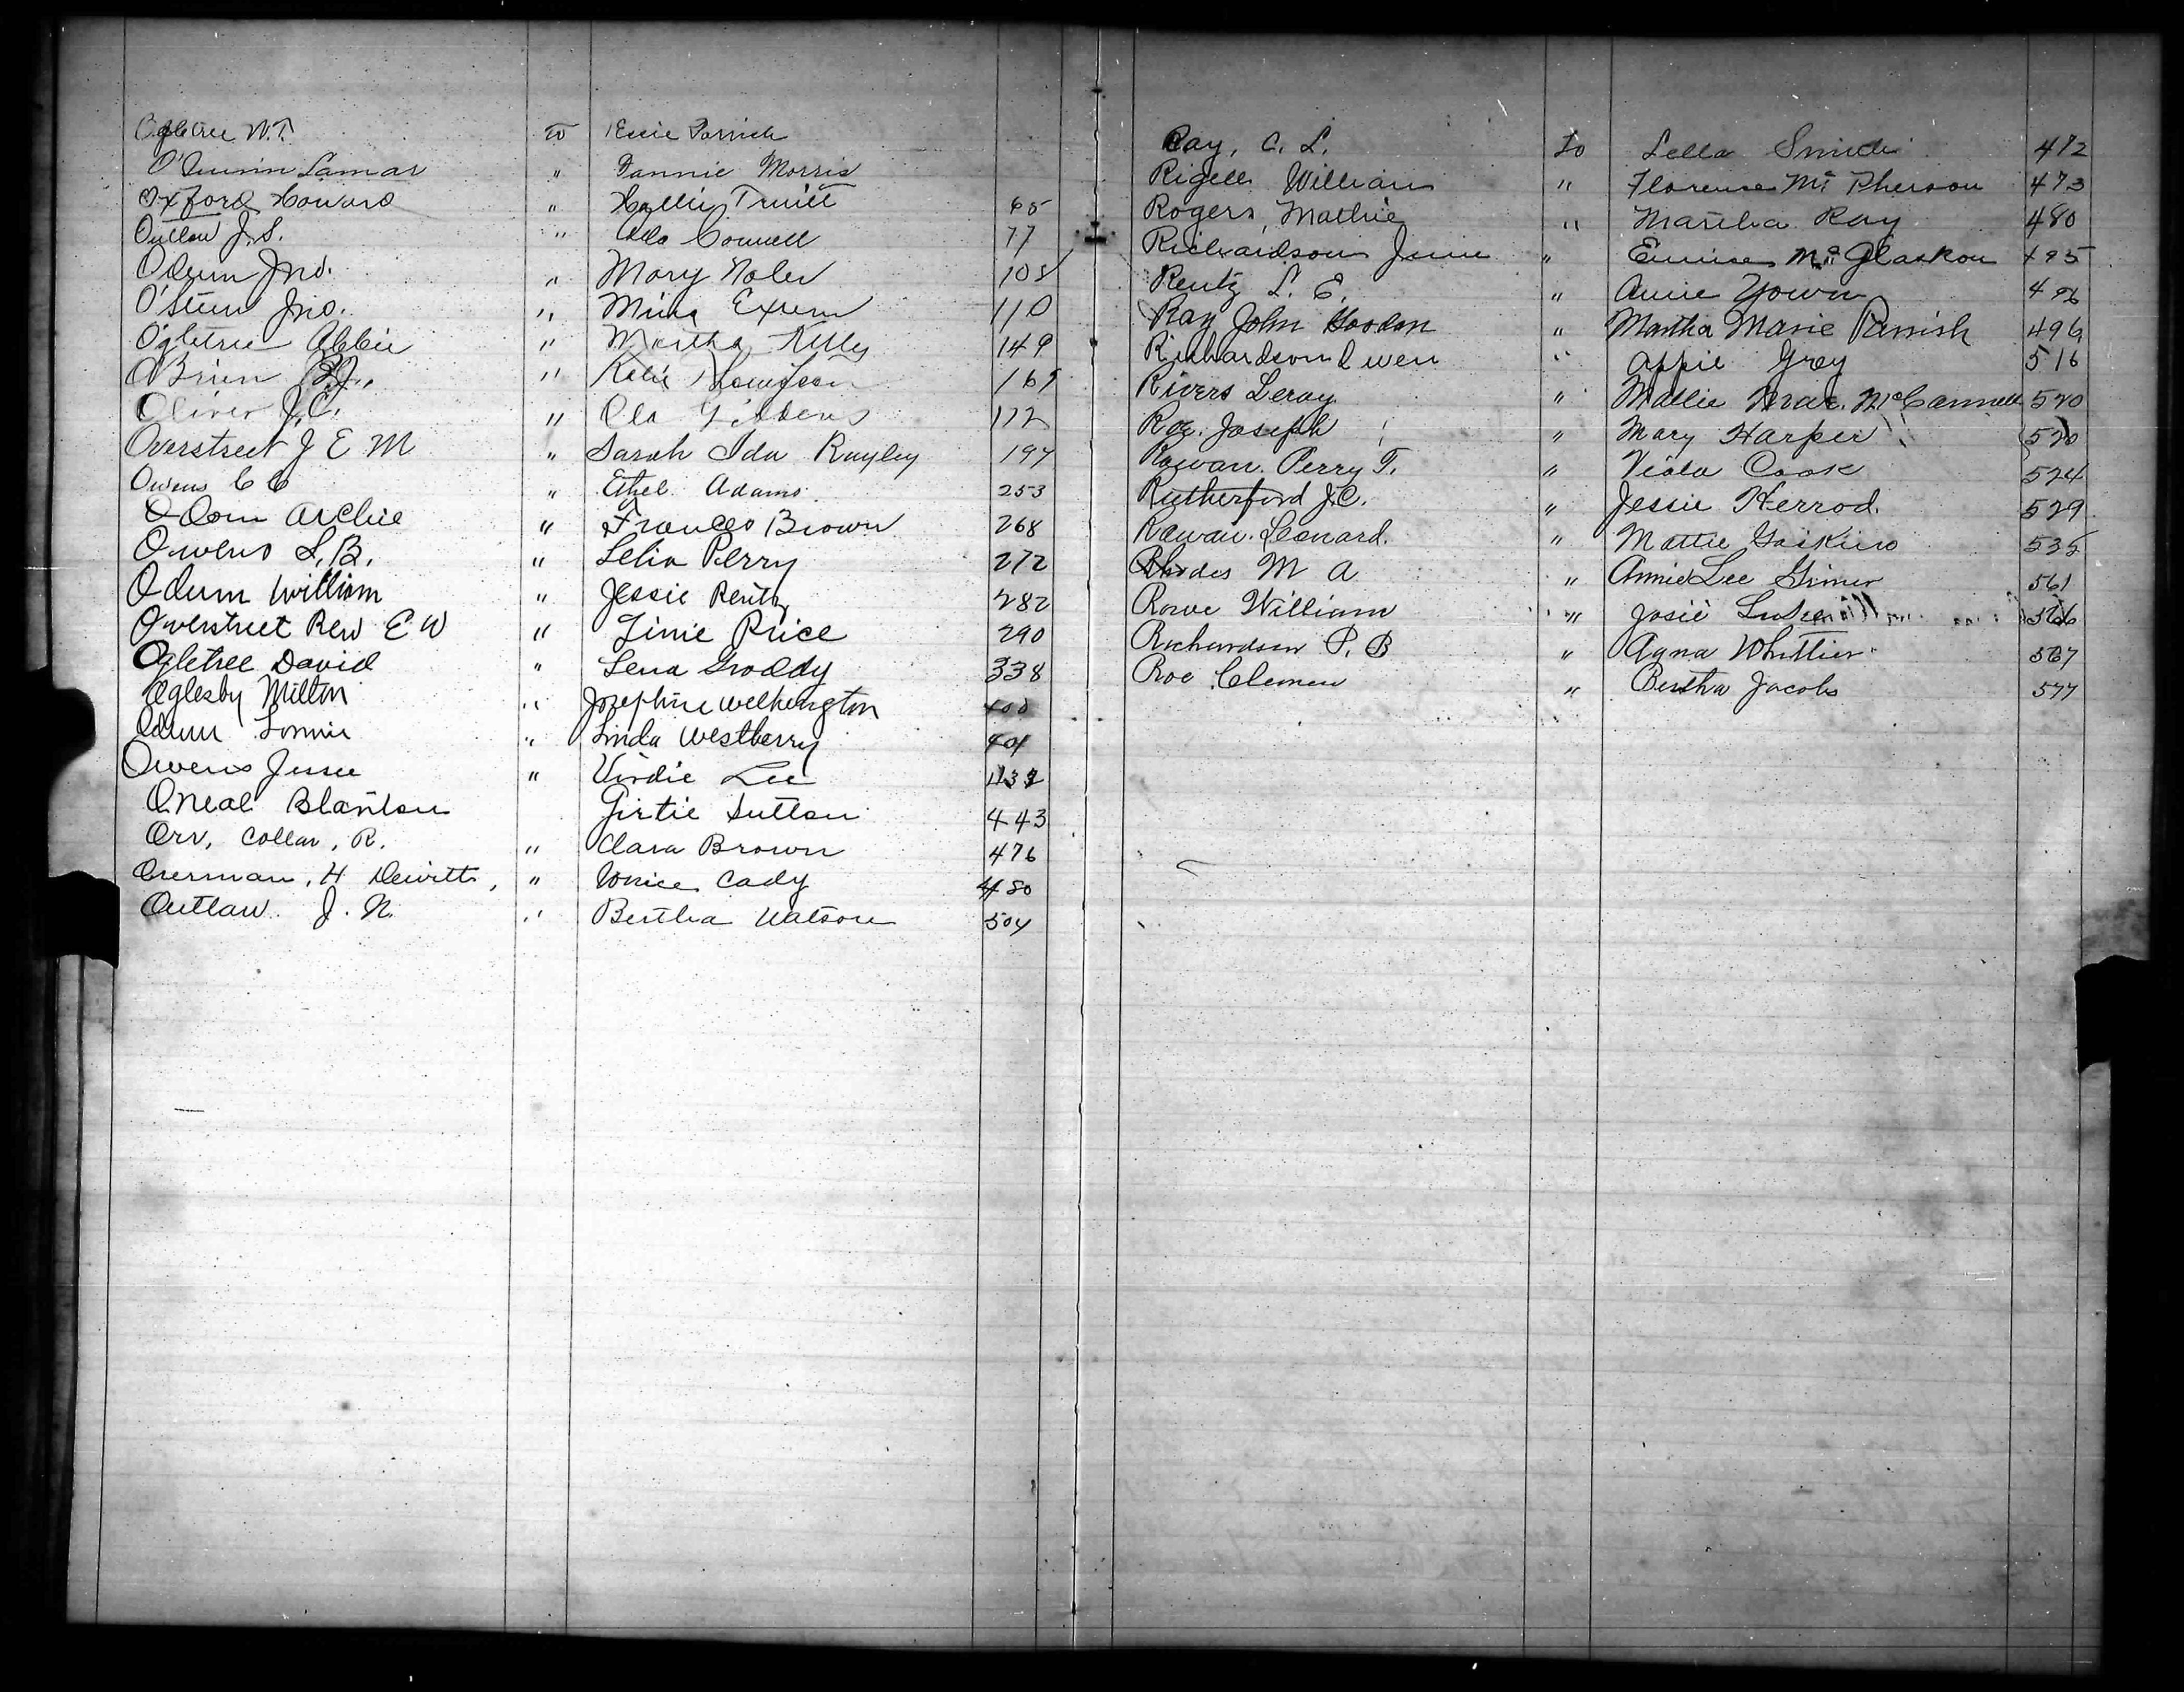 Ogletree W.T. To Essie Parrish
O'Quinn Lamar " Fannie Morris
Oxford Howard " Hallie Truitt 65
Outlaw J.S. " Connell 77
Odum Jno. " Mary Noles 108
O'Steen Jno. " Mina Exum 110
Ogletree Abbie " Martha Kelly 149
O'Brien " Katie Thompson 169
Oliver J.C. " Ola Gibbens 172
Overstreet J E M " Sarah Ida Rayley 194
Owens C C " Ethel Adams 253
Odom Archie " Frances Brown 268
Owens L.B. " Lelia Perry 272
Odum William " Jessie Rentz 282
Overstreet Rev E W " Linie Price 290
Ogletree David " Lena Groddy 338
Oglesby Milton " Josephine Welhington 400
Odum Lonnie " Linda Westberry 401
Owens Jesse " Virdie Lee
O.Neal Blanton Girtie Sutton 443
Orr, Collar, R. " Clara Brown 476
Overman, H Dewitt, " Vonice Cady 480
Outlaw J. N. " Bertha Watson 504
Ray, C. L. To Lella Smith 472
Rigell William " Florence McPherson 473
Rogers, Mathie " Martha Ray 480
Richardson June " Eunice McGlaskon 495
Rentz L. E. " Annie Yowm 496
Ray John Goodon " Martha Marie Parrish 496
Richardson Owen " Appie Gray 516
Rivers Leroy " Mallie Mae. McCannell 520
Roe. Joseph " Mary Harper 520
Rowan. Perry T. " Viola Cook 524
Rutherford J.C. " Jessie Herrod. 529
Rawan. Leonard. " Mattie Gaskins 535
Rhodes M A " Annie Lee Griner 561
Rowe William " Josie 566
Richardson P. B " Agna Whittier 567
Roe Clemen " Bertha Jacobs 577